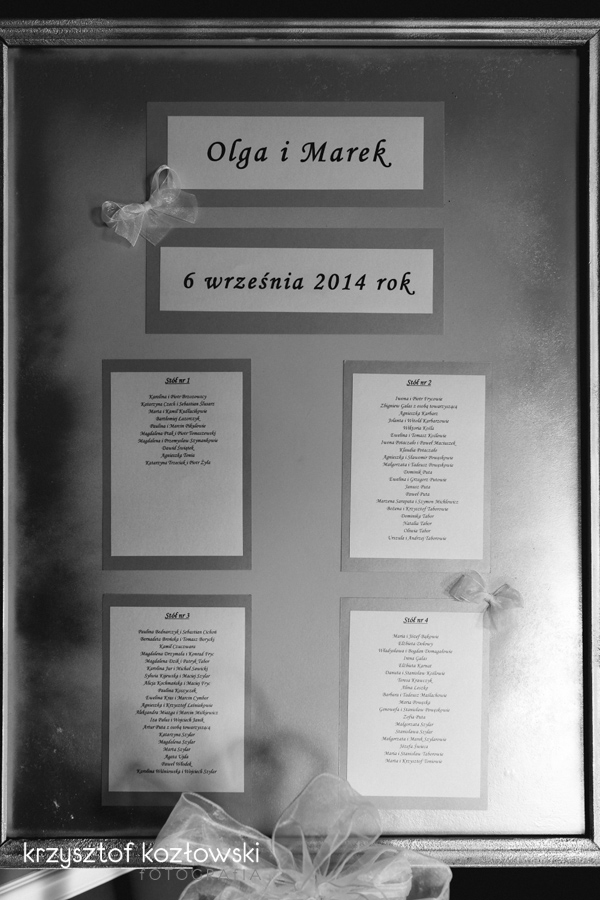 Olga i Marek
6 września 2014 rok
Stół nr 1
Karolina i Piotr Brzozowscy
Katarzyna Czech i Sebastian Ślusarz
Marta i Kamil Kudłacikowie
Bartłomiej Lasończyk
Paulina i Marcin Pikulowie
Magdalena Ptak i Piotr Tomaszewski
Magdalena i Przemysław Szymankowie
Dawid Świątek
Agnieszka Tomia
Katarzyna Trzeciak i Piotr Żyła
Stół nr 2
Iwona i Piotr Frycowie
Zbigniew Galas z osobą towarzyszącą
Agnieszka Karbarz
Jolanta i Witold Karbarzowie
Wiktoria Królik
Ewelina i Tomasz Królowie
Iwona Potaczało i Paweł Maciaszek
Klaudia Potaczało
Agnieszka i Sławomir Powęskowie
Małgorzata i Tadeusz Powęskowie
Dominik Puta
Ewelina i Grzegorz Putowie
Janusz Puta
Paweł Puta
Marzena Sarapata i Szymon Michlowicz
Bożena i Krzysztof Taborowie
Dominika Tabor
Natalia Tabor
Oliwia Tabor
Urszula i Andrzej Taborowie
Stół nr 3
Paulina Bednarczyk i Sebastian Cichoń
Bernadeta Brońska i Tomasz Borycki
Kamil Czaczwara
Magdalena Drzymała i Konrad Fryc
Magdalena Dzek i Patryk Tabor
Karolina Jur i Michał Sawicki
Sylwia Kijowska i Maciej Szyler
Alicja Kochmańska i Maciej Fryc
Paulina Koszyczek
Ewelina Kruc i Marcin Cymber
Agnieszka i Krzysztof Leśniakowie
Aleksandra Miazga i Marcin Mitkiewicz
Iza Palus i Wojciech Janik
Artur Puta z osobą towarzyszącą
Katarzyna Szyler
Magdalena Szyler
Marta Szyler
Agata Vyda
Paweł Włodek
Karolina Wiśniowska i Wojciech Szyler
Stół nr 4
Maria i Józef Bąkowie
Elżbieta Dobosz
Władysława i Bogdan Domagałowie
Irena Galas
Elżbieta Karnat
Danuta i Stanisław Królowie
Teresa Krawczyk
Alina Leszko
Barbara i Tadeusz Maślachowie
Maria Powęska
Genowefa i Stanisław Powęskowie
Zofia Puta
Małgorzata Szyler
Stanisława Szyler
Małgorzata i Marek Szylerowie
Józefa Świeca
Maria i Stanisław Taborowie
Maria i Krzysztof Tomiowie
krzysztof kozłowski
FOTOGRAFIA